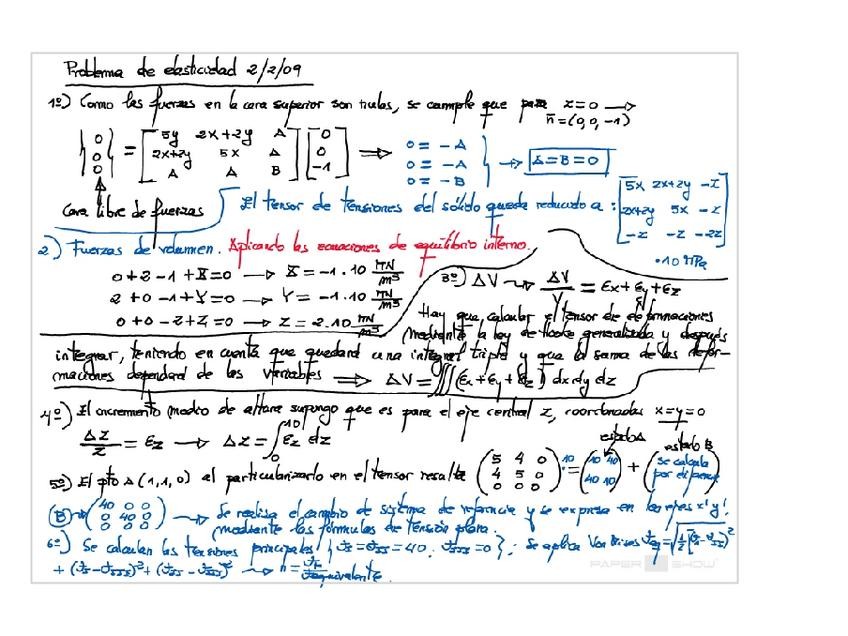 Problema de elasticidad 2/2/09
1º) Como las fuerzas en la cara superior son nulas, se cumple que para z=0 →
n̄=(0,0,-1)
{0 0 0} = [5y 2x+2y A; 2x+2y 5x A; A A B] [0 0 -1] ⟹ 0=-A 0=-A 0=-B } → A=B=0
Cara libre de fuerzas
El tensor de tensiones del sólido queda reducido a: [5x 2x+2y -z; 2x+2y 5x -z; -z -z -2z] ·10 MPa
2) Fuerzas de volumen. Aplicando las ecuaciones de equilibrio interno.
0+2-1+X=0 → X=-1·10 MN/m³
2+0-1+Y=0 → Y=-1·10 MN/m³
0+0-2+Z=0 → Z=2·10 MN/m³
3º) ΔV → ΔV/V = εx+εy+εz
Hay que calcular el tensor de deformaciones
mediante la ley de Hooke generalizada y después
integrar, teniendo en cuenta que quedará una integral triple y que la suma de las defor-
maciones dependerá de las variables ⟹ ΔV=∭(εx+εy+εz) dx dy dz
4º) El incremento medio de altura supongo que es para el eje central z, coordenadas x=y=0
Δz/z = εz → Δz=∫₀¹⁰ εz dz
estado A estado B
5º) El pto A(1,1,0) al particularizarlo en el tensor resulta (5 4 0; 4 5 0; 0 0 0)·10=(10 40; 40 10) + (se calcula por diferencia)
(B)→(40 0 0; 0 40 0; 0 0 0) → Se realiza el cambio de sistema de referencia y se expresa en los ejes x'y'.
mediante las fórmulas de tensión plana.
6º) Se calculan las tensiones principales {σI=σII=40, σIII=0}; Se aplica Von Mises σeq=√½[(σI-σII)²
+(σI-σIII)²+(σII-σIII)² → n=
PAPER SHOW